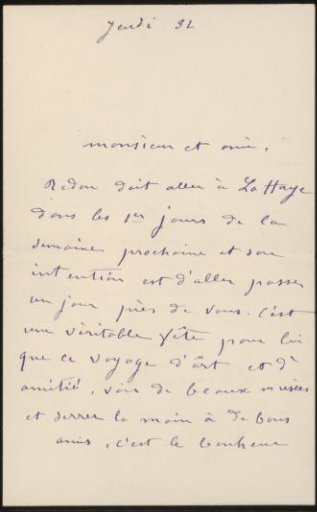 Jeudi 92
monsieur et ami,
Redon doit aller à La Haye
dans les 1er jours de la
semaine prochaine et son
intention est d'aller passer
un jour près de vous. C'est
une véritable fête pour lui
que ce voyage d'art et d'
amitié, voir de beaux musées
et serrer la main à de bons
amis, c'est le bonheur